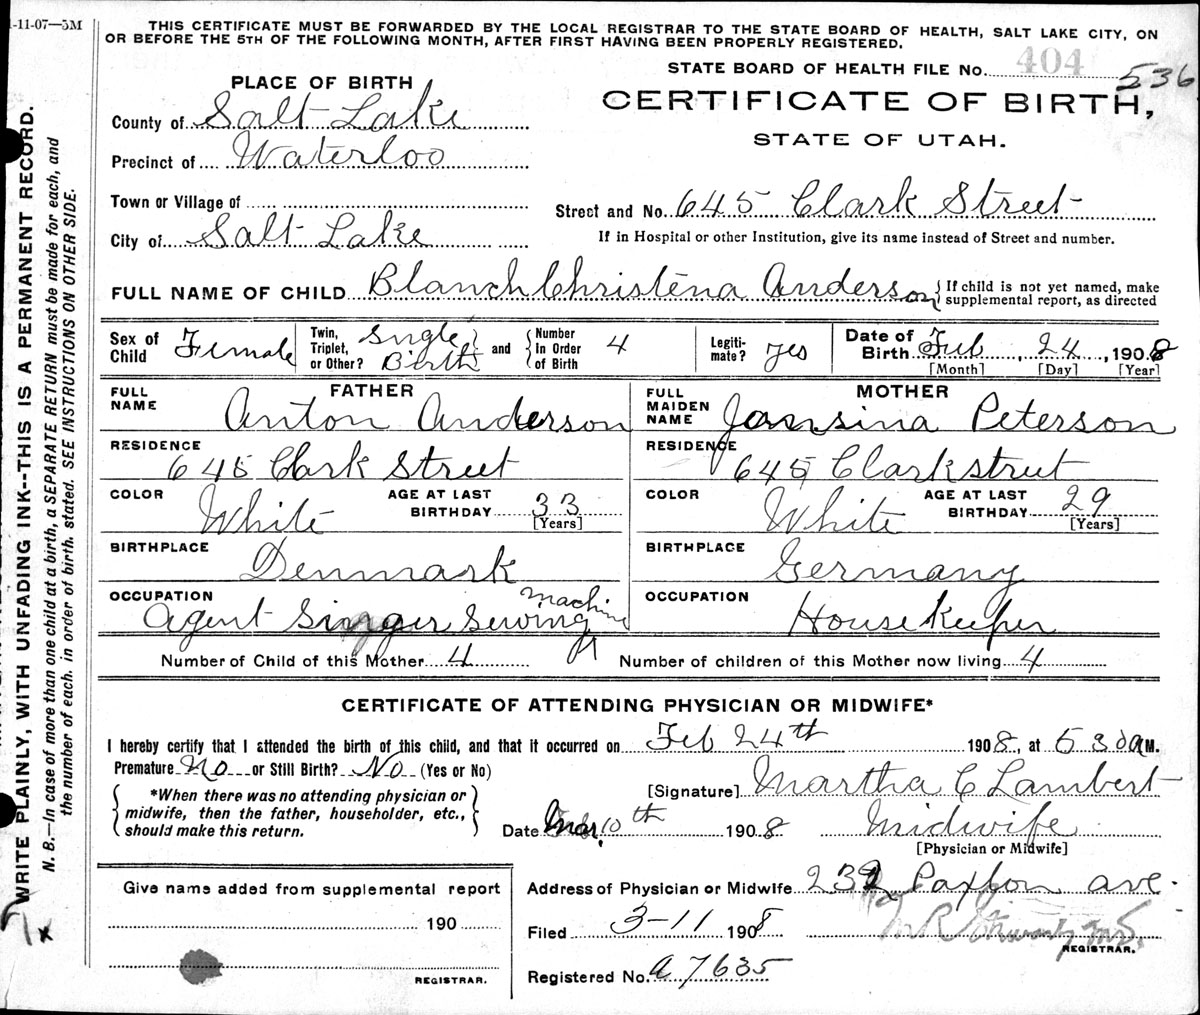 1-11-07—5M
THIS CERTIFICATE MUST BE FORWARDED BY THE LOCAL REGISTRAR TO THE STATE BOARD OF HEALTH, SALT LAKE CITY, ON
OR BEFORE THE 5TH OF THE FOLLOWING MONTH, AFTER FIRST HAVING BEEN PROPERLY REGISTERED.
STATE BOARD OF HEALTH FILE No. 404 536
PLACE OF BIRTH
CERTIFICATE OF BIRTH,
STATE OF UTAH.
County of Salt Lake
Precinct of Waterloo
Town or Village of
City of Salt Lake
Street and No. 645 Clark Street
If in Hospital or other Institution, give its name instead of Street and number.
FULL NAME OF CHILD Blanch Christena Anderson { If child is not yet named, make
supplemental report, as directed
Sex of Child Female
Twin, Triplet, or Other? Single Birth } and { Number In Order of Birth 4
Legiti-mate? yes
Date of Birth Feb, 24, 1908
[Month] [Day] [Year]
FATHER
FULL NAME Anton Anderson
RESIDENCE 645 Clark Street
COLOR White AGE AT LAST BIRTHDAY 33 [Years]
BIRTHPLACE Denmark
OCCUPATION Agent Singer Sewing machine
MOTHER
FULL MAIDEN NAME Jansina Peterson
RESIDENCE 645 Clark street
COLOR White AGE AT LAST BIRTHDAY 29 [Years]
BIRTHPLACE Germany
OCCUPATION House Keeper
Number of Child of this Mother 4 Number of children of this Mother now living 4
CERTIFICATE OF ATTENDING PHYSICIAN OR MIDWIFE*
I hereby certify that I attended the birth of this child, and that it occurred on Feb 24th 1908, at 5 30 A M.
Premature No or Still Birth? No (Yes or No)
[Signature] Martha C Lambert
{ *When there was no attending physician or
midwife, then the father, householder, etc.,
should make this return. }
Date Mar. 10th 1908 Midwife
[Physician or Midwife]
Give name added from supplemental report
190
REGISTRAR.
Address of Physician or Midwife 232 Paxton ave.
Filed 3-11 1908
REGISTRAR.
Registered No. a 7635
WRITE PLAINLY, WITH UNFADING INK--THIS IS A PERMANENT RECORD.
N. B.—In case of more than one child at a birth, a SEPARATE RETURN must be made for each, and
the number of each, in order of birth, stated. SEE INSTRUCTIONS ON OTHER SIDE.